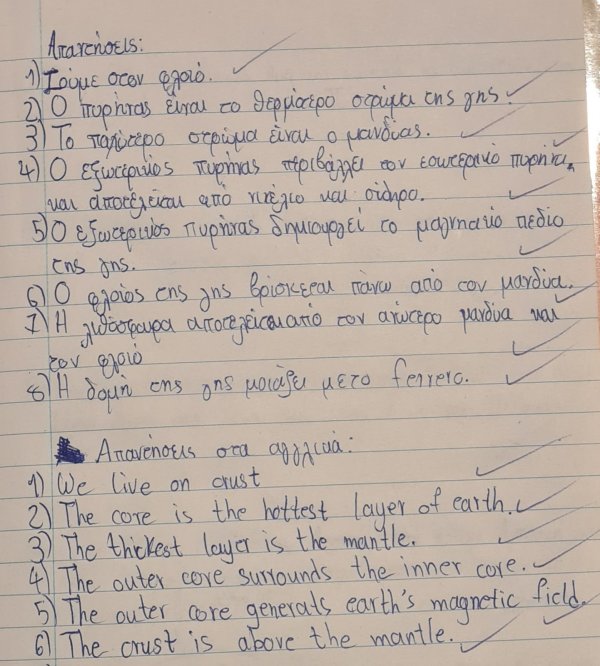 Απαντήσεις:
1) Ζούμε στον φλοιό.
2) Ο πυρήνας είναι το θερμότερο στρώμα της γης.
3) Το παχύτερο στρώμα είναι ο μανδύας.
4) Ο εξωτερικός πυρήνας περιβάλλει τον εσωτερικό πυρήνα,
και αποτελείται από νικέλιο και σίδηρο.
5) Ο εξωτερικός πυρήνας δημιουργεί το μαγνητικό πεδίο
της γης.
6) Ο φλοιός της γης βρίσκεται πάνω από τον μανδύα.
7) Η λιθόσφαιρα αποτελείται από τον ανώτερο μανδύα και
τον φλοιό
8) Η δομη της γης μοιάζει με το ferrero.
Απαντήσεις στα αγγλικά:
1) We live on crust
2) The core is the hottest layer of earth.
3) The thickest layer is the mantle.
4) The outer core surrounds the inner core.
5) The outer core generats earth's magnetic field.
6) The crust is above the mantle.